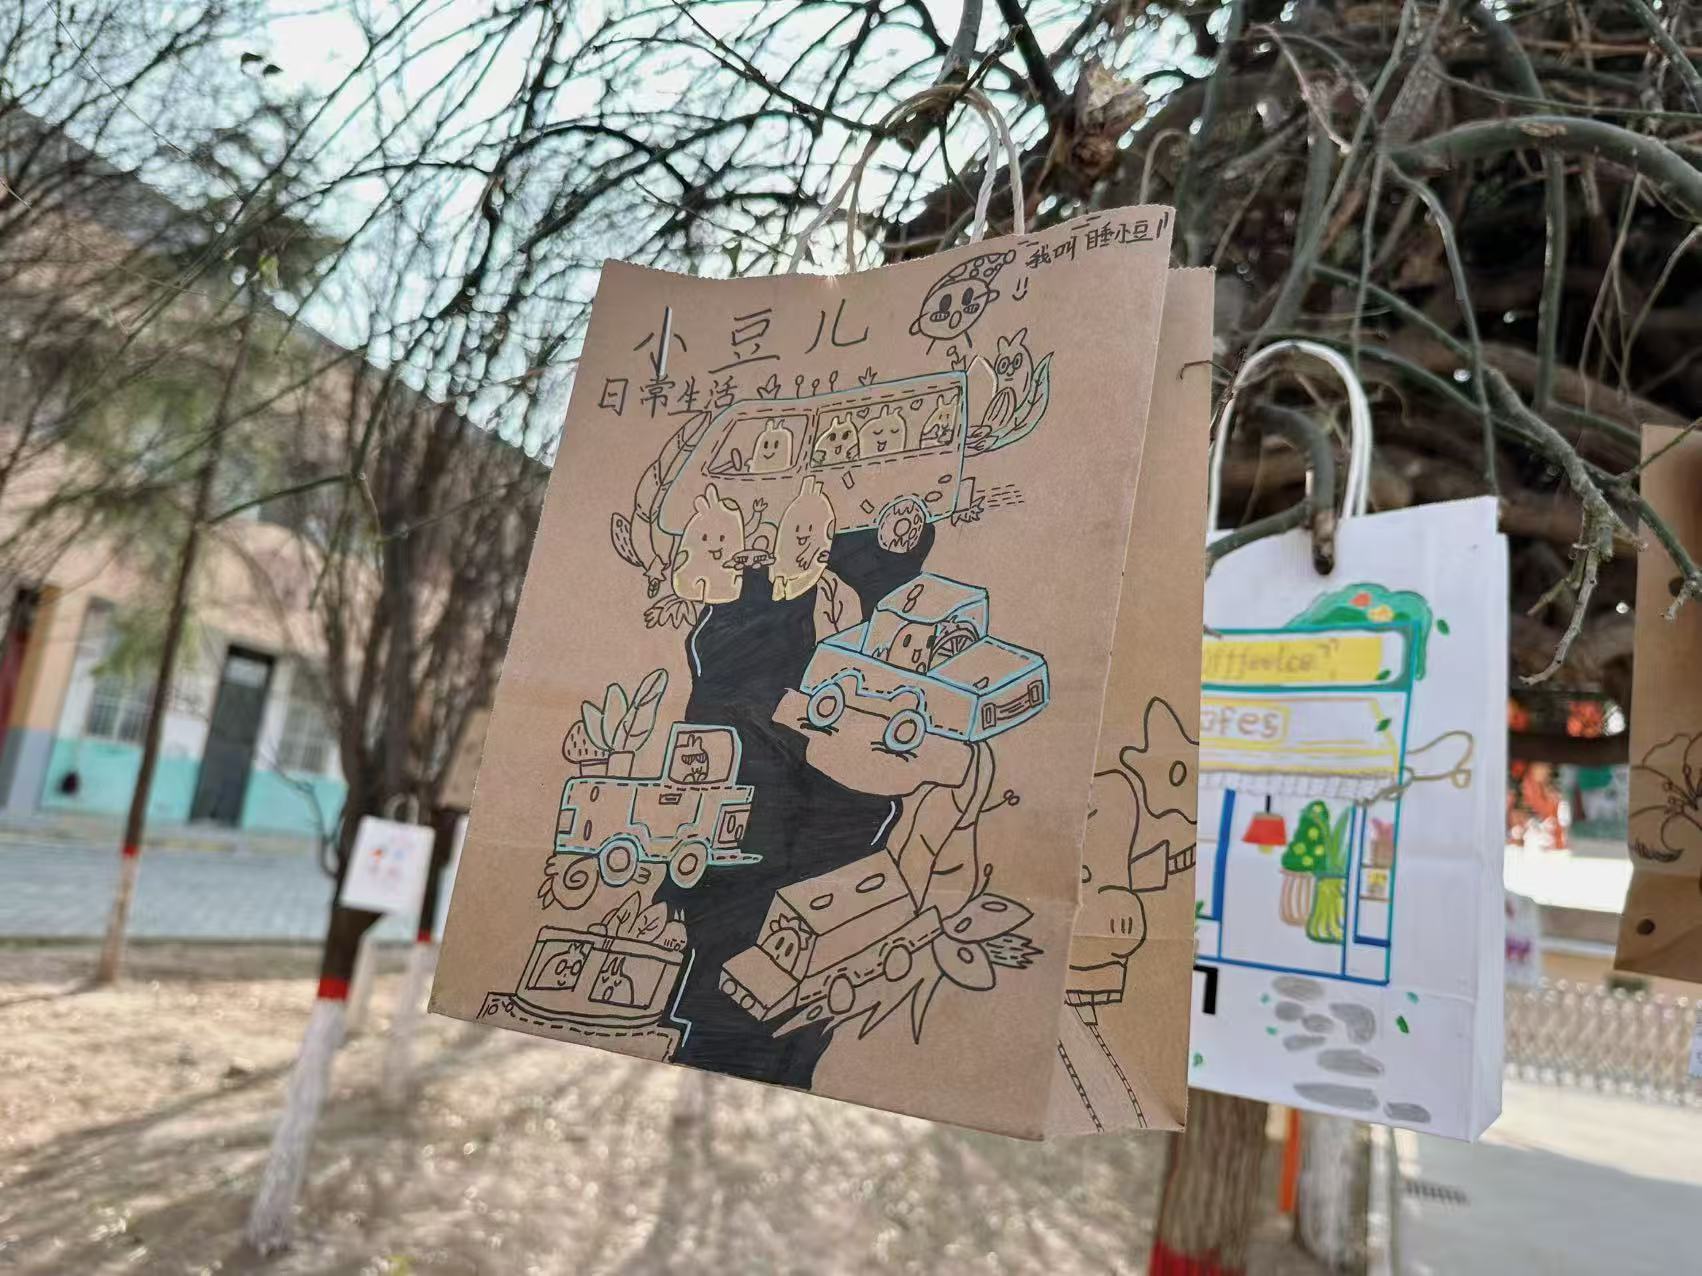 小豆儿
日常生活
我叫"睡小豆"
8